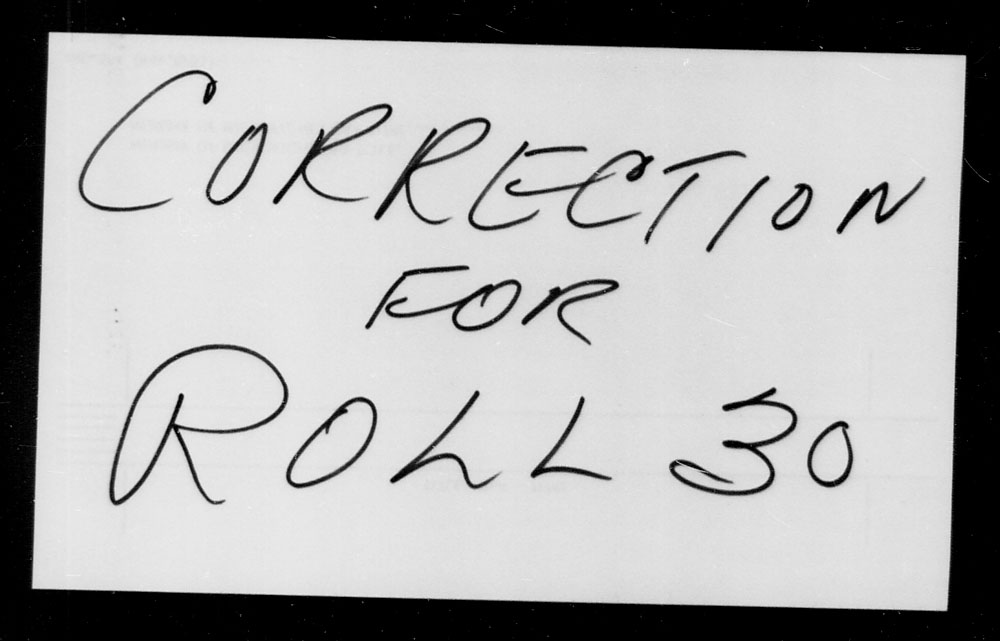 CORRECTION
FOR
ROLL 30